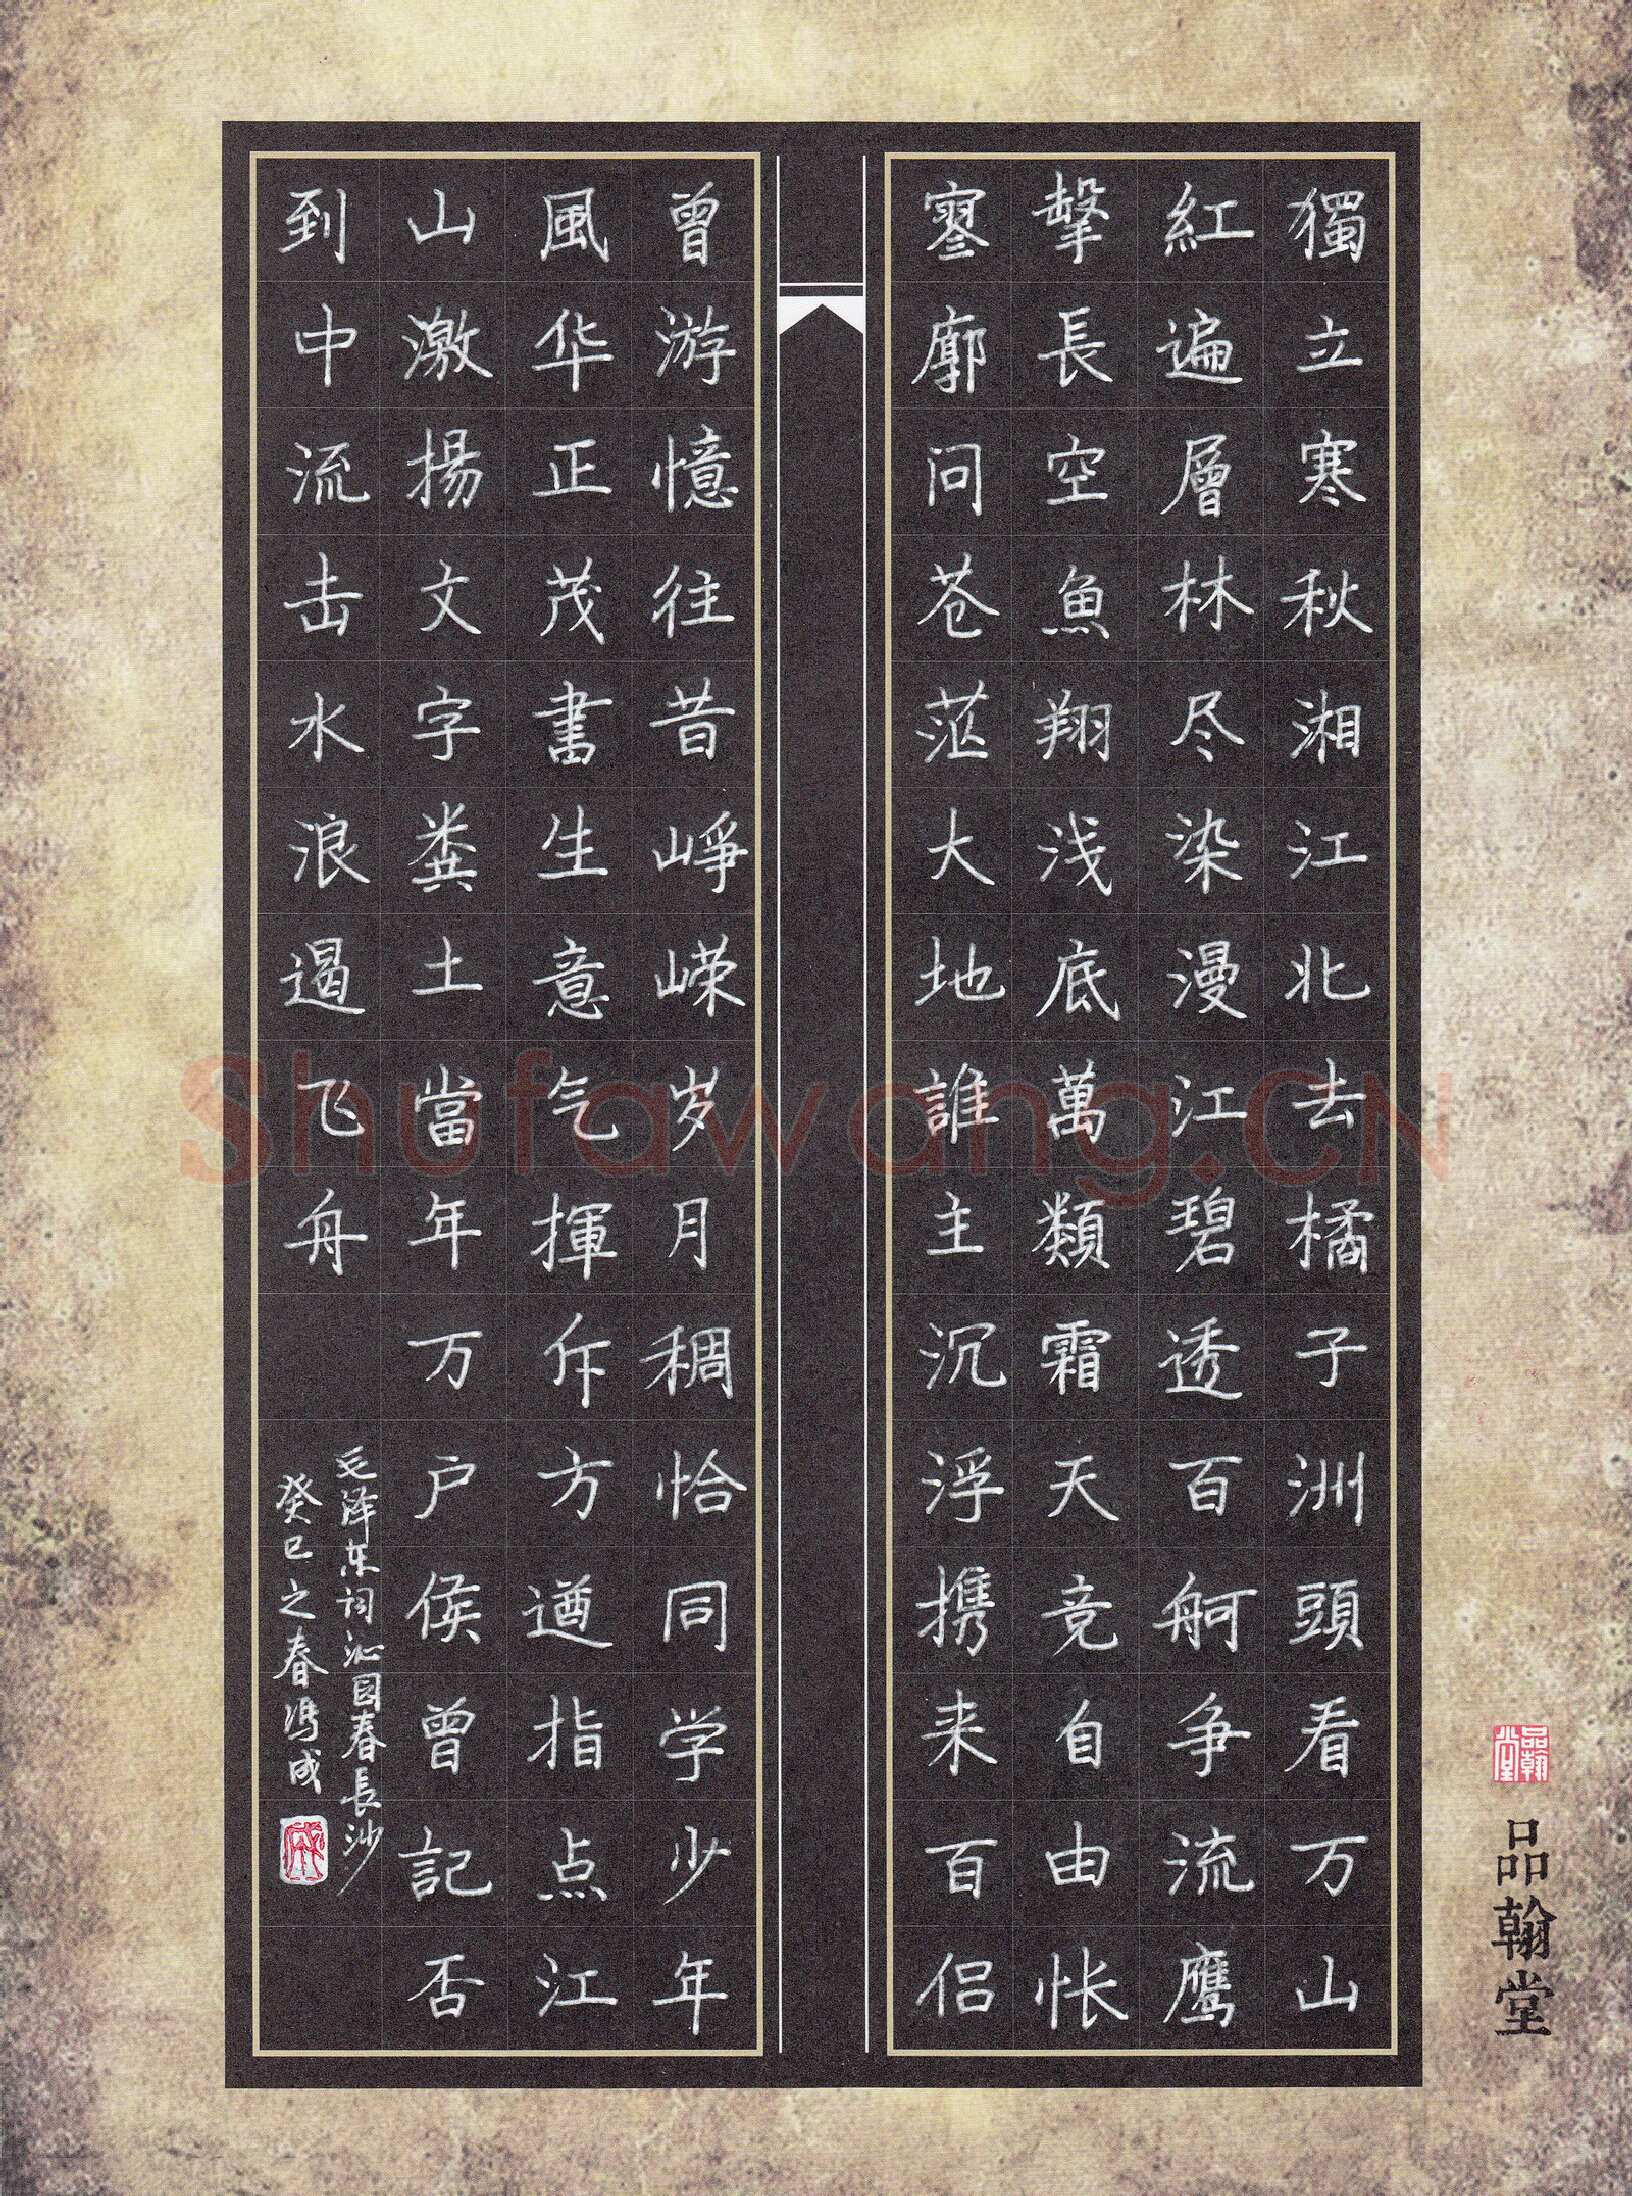 獨立寒秋湘江北去橘子洲頭看万山
紅遍層林尽染漫江碧透百舸争流鹰
擊長空魚翔浅底萬類霜天竞自由怅
寥廓问苍茫大地誰主沉浮携来百侣
曾游憶往昔峥嵘岁月稠恰同学少年
風华正茂書生意气揮斥方遒指点江
山激揚文字粪土當年万户侯曾記否
到中流击水浪遏飞舟
毛泽东词沁园春長沙
癸巳之春冯成
品翰堂
品翰堂
Shufawang.CN